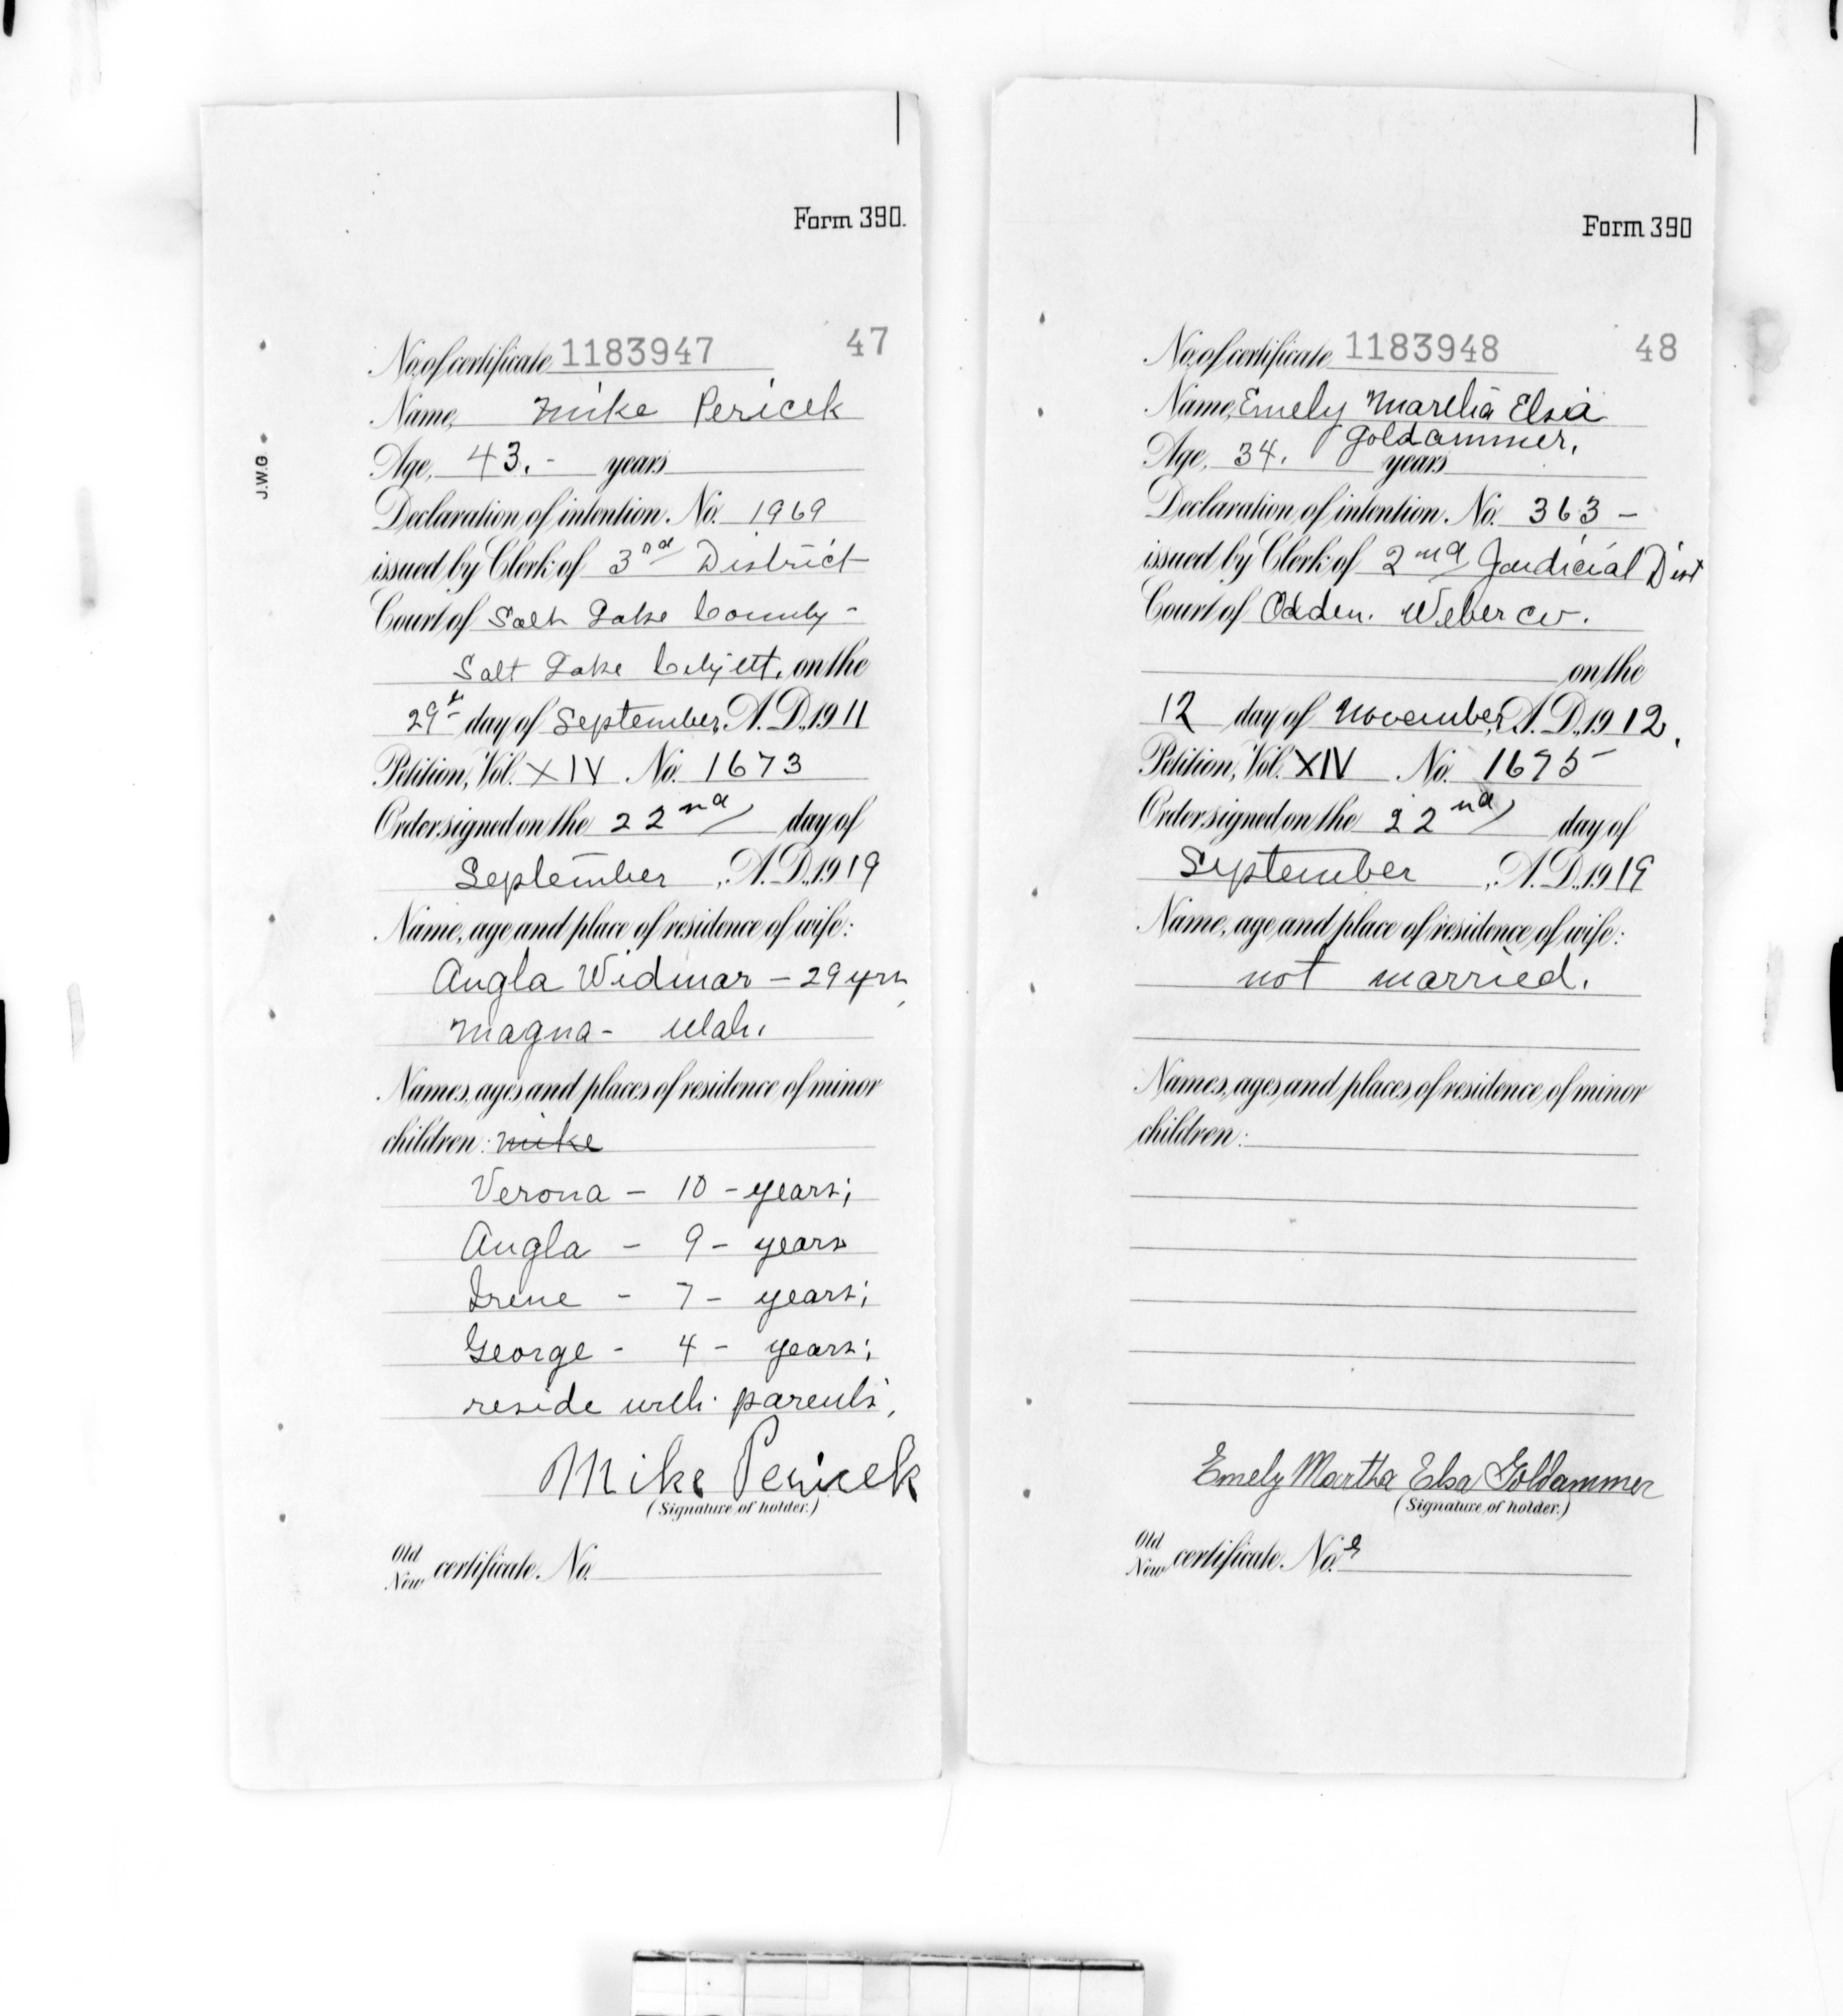 Form 390.
No. of certificate 1183947 47
Name, Mike Pericek
Age, 43.- years
Declaration of intention. No. 1969
issued by Clerk of 3rd District
Court of Salt Lake County -
Salt Lake City Ut. on the
29th day of September, A.D., 1911
Petition, Vol. XIV No. 1673
Order signed on the 22nd day of
September, A.D., 1919
Name, age and place of residence of wife:
Angla Widmar - 29 yrs
Magna - Utah.
Names, ages and places of residence of minor
children: Mike
Verona - 10 - years;
Angla - 9 - years
Irene - 7 - years;
George - 4 - years;
reside with parents,
Mike Pericek
(Signature of holder.)
Old
New certificate. No.
J.W.G.
Form 390
No. of certificate 1183948 48
Name, Emely Martha Elsa
Goldammer.
Age, 34. years
Declaration of intention. No. 363 -
issued by Clerk of 2nd Judicial Dist
Court of Odden. Weber co.
on the
12 day of November, A.D., 1912.
Petition, Vol. XIV No. 1675
Order signed on the 22nd day of
September, A.D., 1919
Name, age and place of residence of wife:
not married.
Names, ages and places of residence of minor
children:
Emely Martha Elsa Goldammer
(Signature of holder.)
Old
New certificate. No.